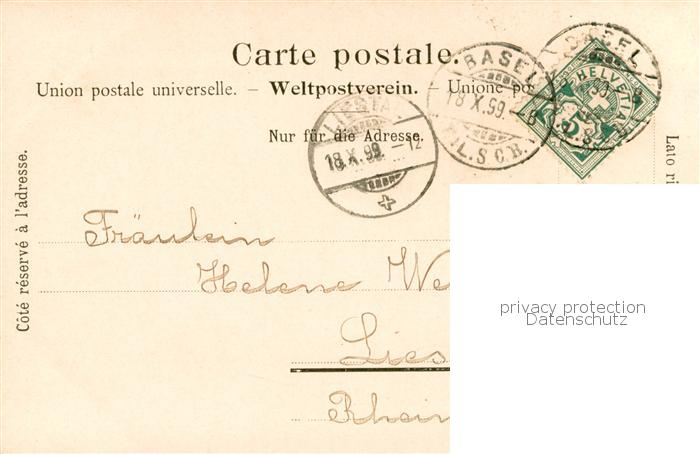 Carte postale.
Union postale universelle. – Weltpostverein. – Unione po
Nur für die Adresse.
Côté réservé à l'adresse.
Lato ri
LIESTA
18.X.99.–12
BASEL
18.X.99.–8
L.S C.B.
BASEL
HELVETIA
5
Fräulein
Helene We
Lies
Rhein
privacy protection
Datenschutz